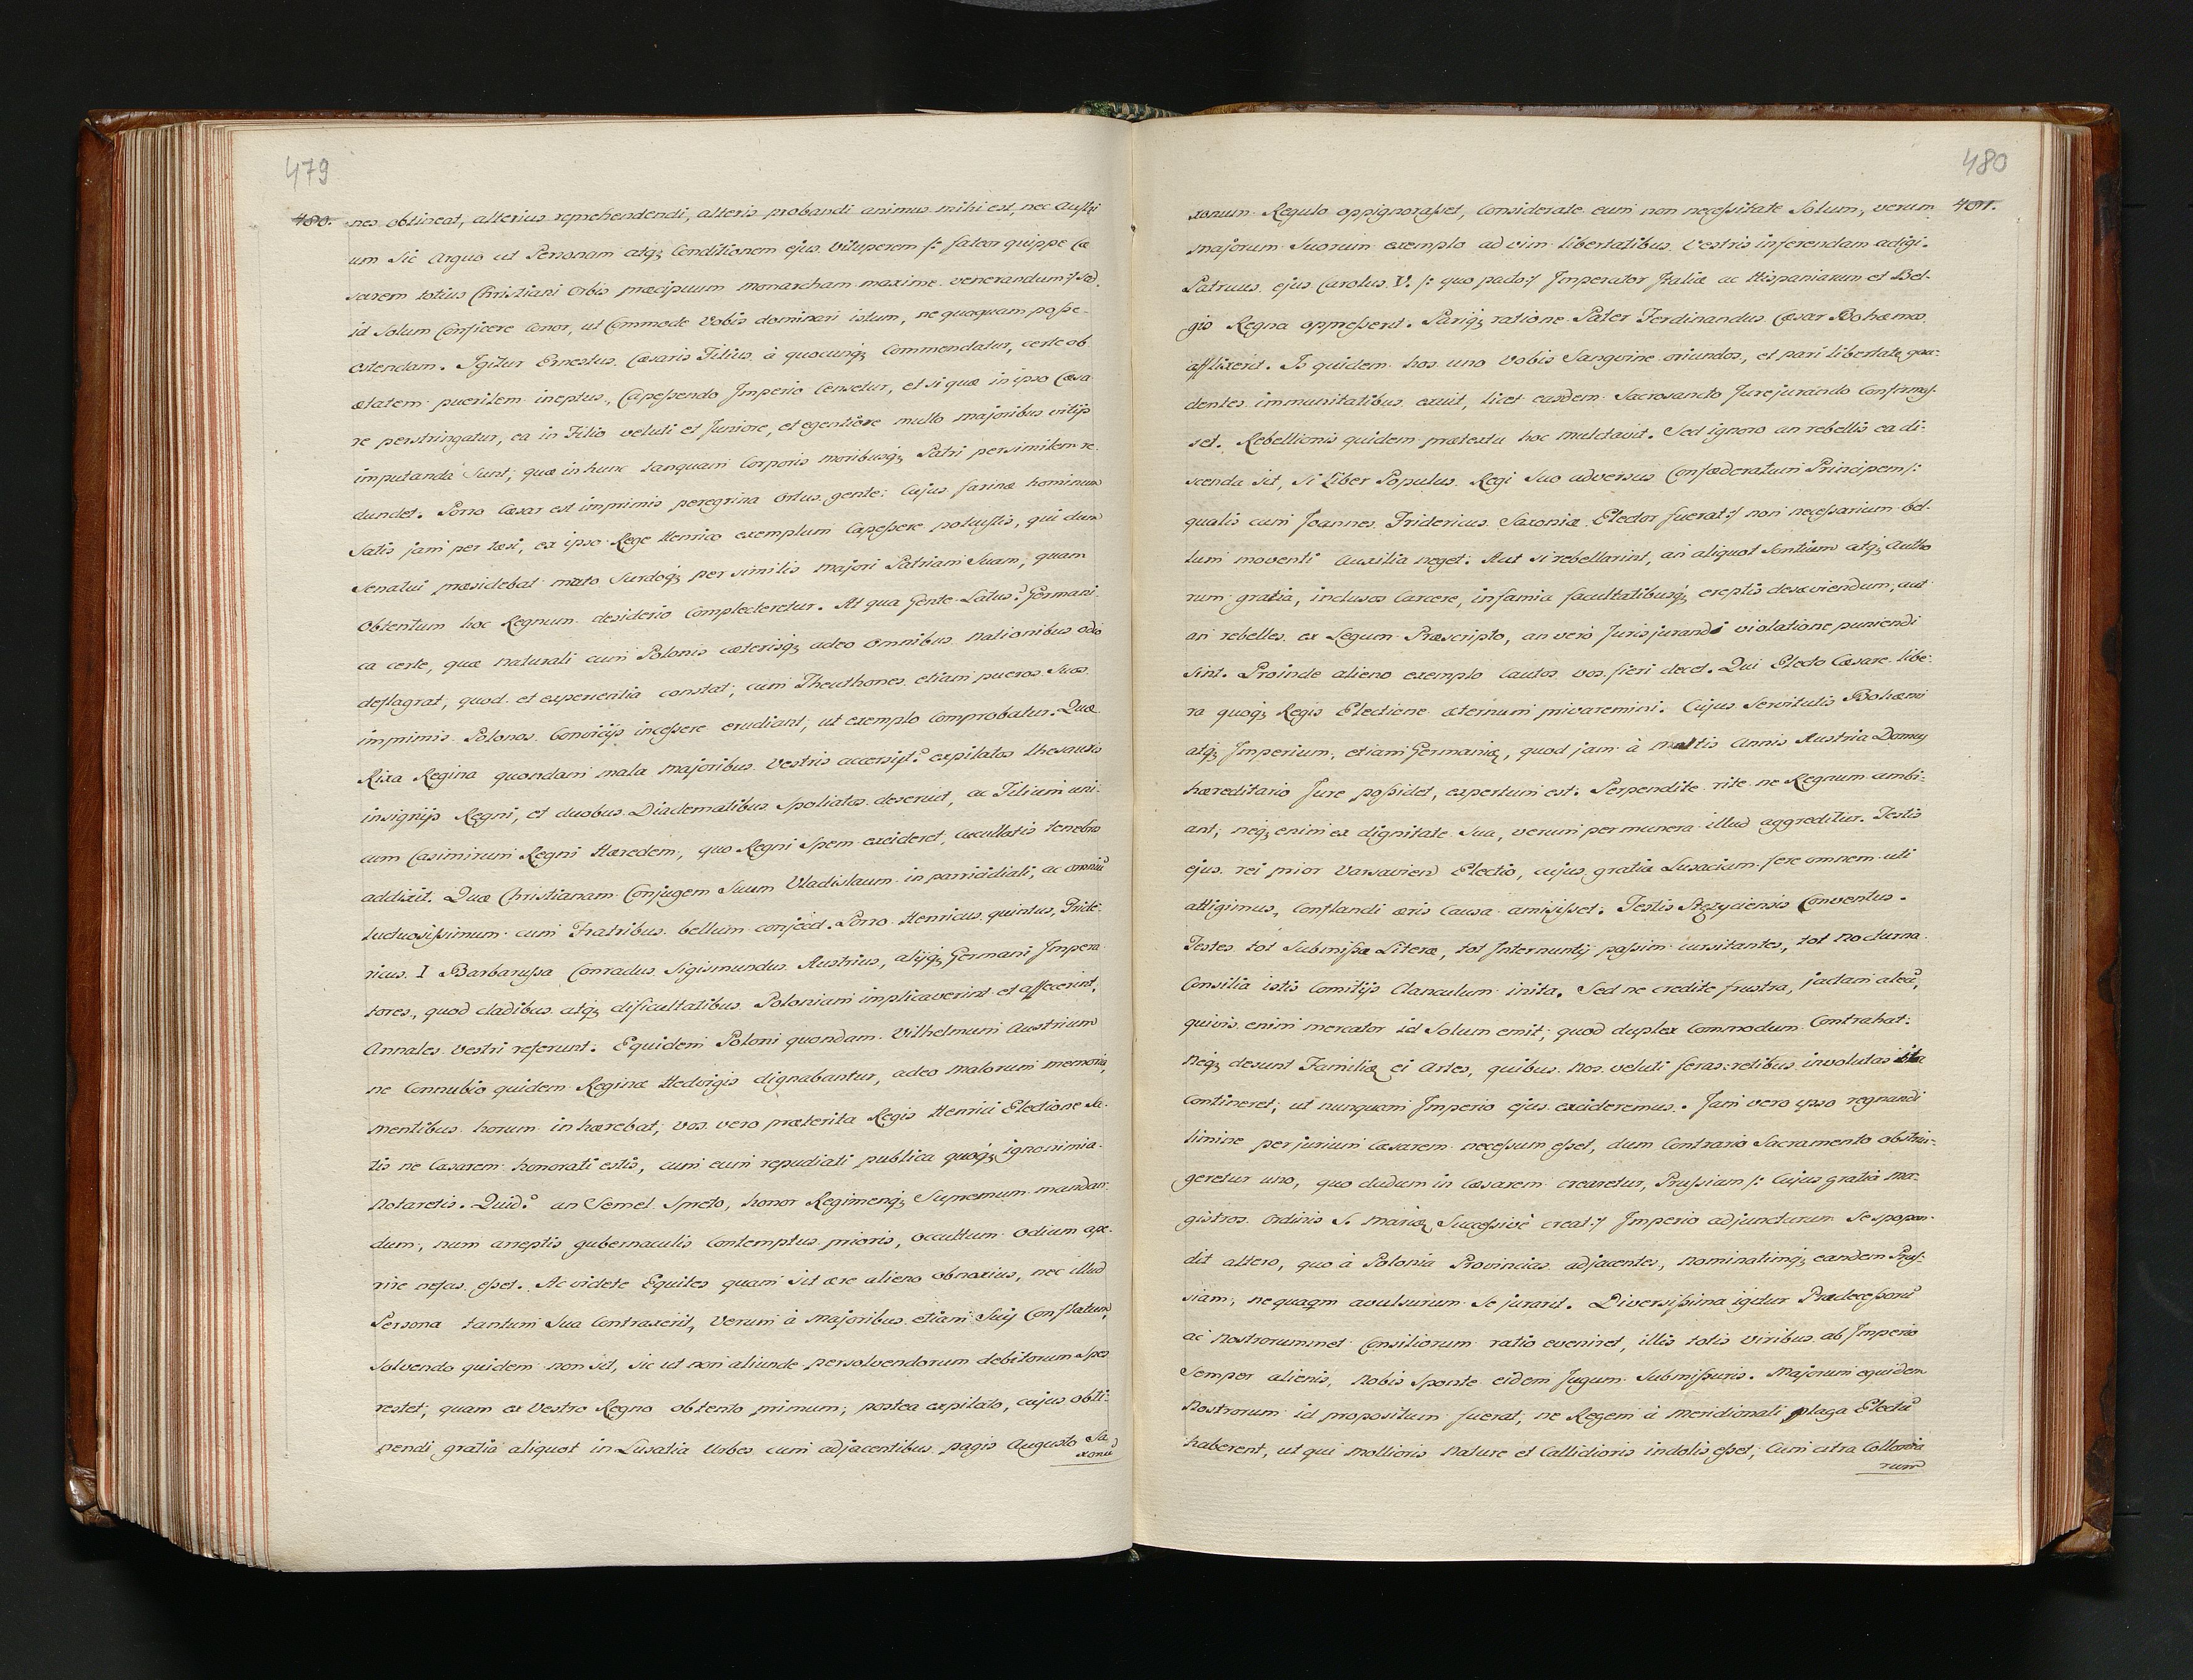 479
480.
nes obtineat, alterius reprehendendi, alteris probandi animus mihi est, nec Austri
um sic Arguo ut Personam atq; Conditionem ejus vituperem /: fateor quippe Cæ
sarem totius Christiani Orbis præcipuum Monarcham maxime venerandum :/ sed
id solum Conficere Conor, ut Commode Vobis dominari istum, ne quaquam posse
ostendam. Igitur Ernestus Cæsaris Filius à quocunq; Commendatur, certe ob
ætatem puerilem ineptus, Capessendo Imperio Censetur, et si quæ in ipso Cæsa
re perstringatur, ea in Filio veluti et Juniore, et egentiore multo majoribus vitijs
imputanda sunt, quæ in hunc tanquam Corporis moribusq; Patri persimilem re
dundet. Porro Cæsar est imprimis peregrina Ortus gente: Cujus farinæ hominum
satis jam per tæsi, ex ipso Rege Henrico exemplum Capessere potuistis, qui dum
Senatui præsidebat muto Surdoq; per similis majori Patriam Suam, quam
Obtentum hoc Regnum desiderio Complecteretur. At qua Gente Satus? Germani
ca certe, quæ naturali cum Polonis cæterisq; adeo Omnibus Nationibus odio
deflagrat, quod et experientia constat, cum Theuthones etiam pueros Suos
imprimis Polonos Convicijs incessere erudiant, ut exemplo Comprobatur. Quæ
Rixa Regina quondam mala Majoribus Vestris accersijt? expilatos thesauris
insignijs Regni, et duobus Diadematibus Spoliatos deseruit, ac Filium uni
cum Casimirum Regni Hæredem, quo Regni Spem excideret, Cucullatis tenebris
addixit. Quæ Christianam Conjugem Suum Vladislaum in parricidiali, ac omniũ
luctuosissimum cum Fratribus bellum conjecit. Porro Henricus quintus, Fride
ricus I Barbarussa Conradus Sigismundus Austrius, alijq; Germani Impera
tores, quod cladibus atq; dificultatibus Poloniam implicaverint et affecerint,
Annales Vestri referunt. Equidem Poloni quondam Vilhelmum Austrium
ne Connubio quidem Reginæ Hedvigis dignabantur, adeo Malorum memoria,
Mentibus horum in hærebat, vos vero præterita Regis Henrici Electione sa
tis ne Cæsarem honorati estis, cum eum repudiati publica quoq; ignonimia
Notaretis. Quid? an Semel Spreto, honor Regimenq; Supremum mandan
dum, num arreptis gubernaculis Contemptus prioris, Occultum Odium ape
rire nefas esset. Ac videte Equites quam sit ære alieno obnoxius, nec illud
Persona tantum Sua Contraxerit, Verum à Majoribus etiam Suis Conflatum,
Solvendo quidem non sit, sic ut non aliunde persolvendorum debitorum spes
restet, quam ex Vestro Regno obtento primum, postea expilato, cujus obti
nendi gratia aliquot in Lusatia Urbes cum adjacentibus pagis Augusto Sa
xonũ
480
481.
xonum Regulo oppignorasset, Considerate eum non necessitate Solum, verum
majorum Suorum exemplo ad vim libertatibus Vestris inferendam adigi.
Patruus ejus Carolus V. /: quo pacto :/ Imperator Italiæ ac Hispaniarum et Bel
gis Regna oppresserit. Pariq; ratione Pater Ferdinandus Cæsar Bohæmos
afflixerit. Is quidem hos uno Vobis Sangvine oriundos, et pari libertate gau
dentes immunitatibus exuit, licet easdem Sacrosancto Jurejurando Confirmas
set. Rebellionis quidem prætextu hoc mulctavit. Sed ignoro an rebellis ea di
scenda sit, si Liber Populus Regi Suo adversus Confæderatum Principem /:
qualis cum Joannes Fridericus Saxoniæ Elector fuerat :/ non necessarium bel
lum moventi Auxilia neget: Aut si rebellarint, an aliquot Sontium atq; Autho
rum gratia, inclusos Carcere, infamia facultatibusq; ereptis desæviendum, aut
an rebelles ex Legum Præscripto, an vero Jurisjurandi violatione puniendi
sint. Proinde alieno exemplo Cautos vos fieri decet. Qui Electo Cæsare libe
ra quoq; Regis Electione æternum privaremini. Cujus Servitutis Bohæmi
atq; Imperium, etiam Germaniæ, quod jam à Multis Annis Austria Domus
hæreditario Jure possidet, expertum est: Perpendite rite ne Regnum ambi
ant, neq; enim ex dignitate Sua, verum per munera illud aggreditur. Testis
ejus rei prior Varsavien Electio, cujus gratia Lusaciam fere omnem uti
attigimus, Conflandi æris Causa amisisset: Testis Stezyciensis Conventus.
Testes tot Submissæ Literæ, tot Internuntij passim cursitantes, tot Nocturna
Consilia istis Comitijs Clanculum inita. Sed ne credite frustra, jactam aleã,
quivis enim mercator id Solum emit, quod duplex Commodum Contrahat:
Neq; desunt Familiæ ei Artes, quibus Nos veluti feras retibus involutas ita
Contineret, ut nunquam Imperio ejus excideremus. Jam vero ipso regnandi
limine perjurium Cæsarem necessum esset, dum Contrario Sacramento obstrin
geretur uno, quo dudum in Cæsarem crearetur, Prussiam /: Cujus gratia Ma
gistros Ordinis S. Mariæ Successivè creat :/ Imperio adjuncturum Se spopon
dit altero, quo à Polonia Provincias adjacentes, Nominatimq; eandem Prus
siam, ne quaqm avulsurum Se jurarit. Diversissima igitur Prædecessorũ
ac Nostrorummet Consiliorum ratio eveniret, illis totis viribus ab Imperio
Semper alienis, Nobis Sponte eidem Jugum Submissuris. Majorum equidem
Nostrorum id propositum fuerat, ne Regem à Meridionali plaga Electũ
haberent, ut qui Mollioris Nature et Callidioris indolis esset, Cum citra Collonia
rum